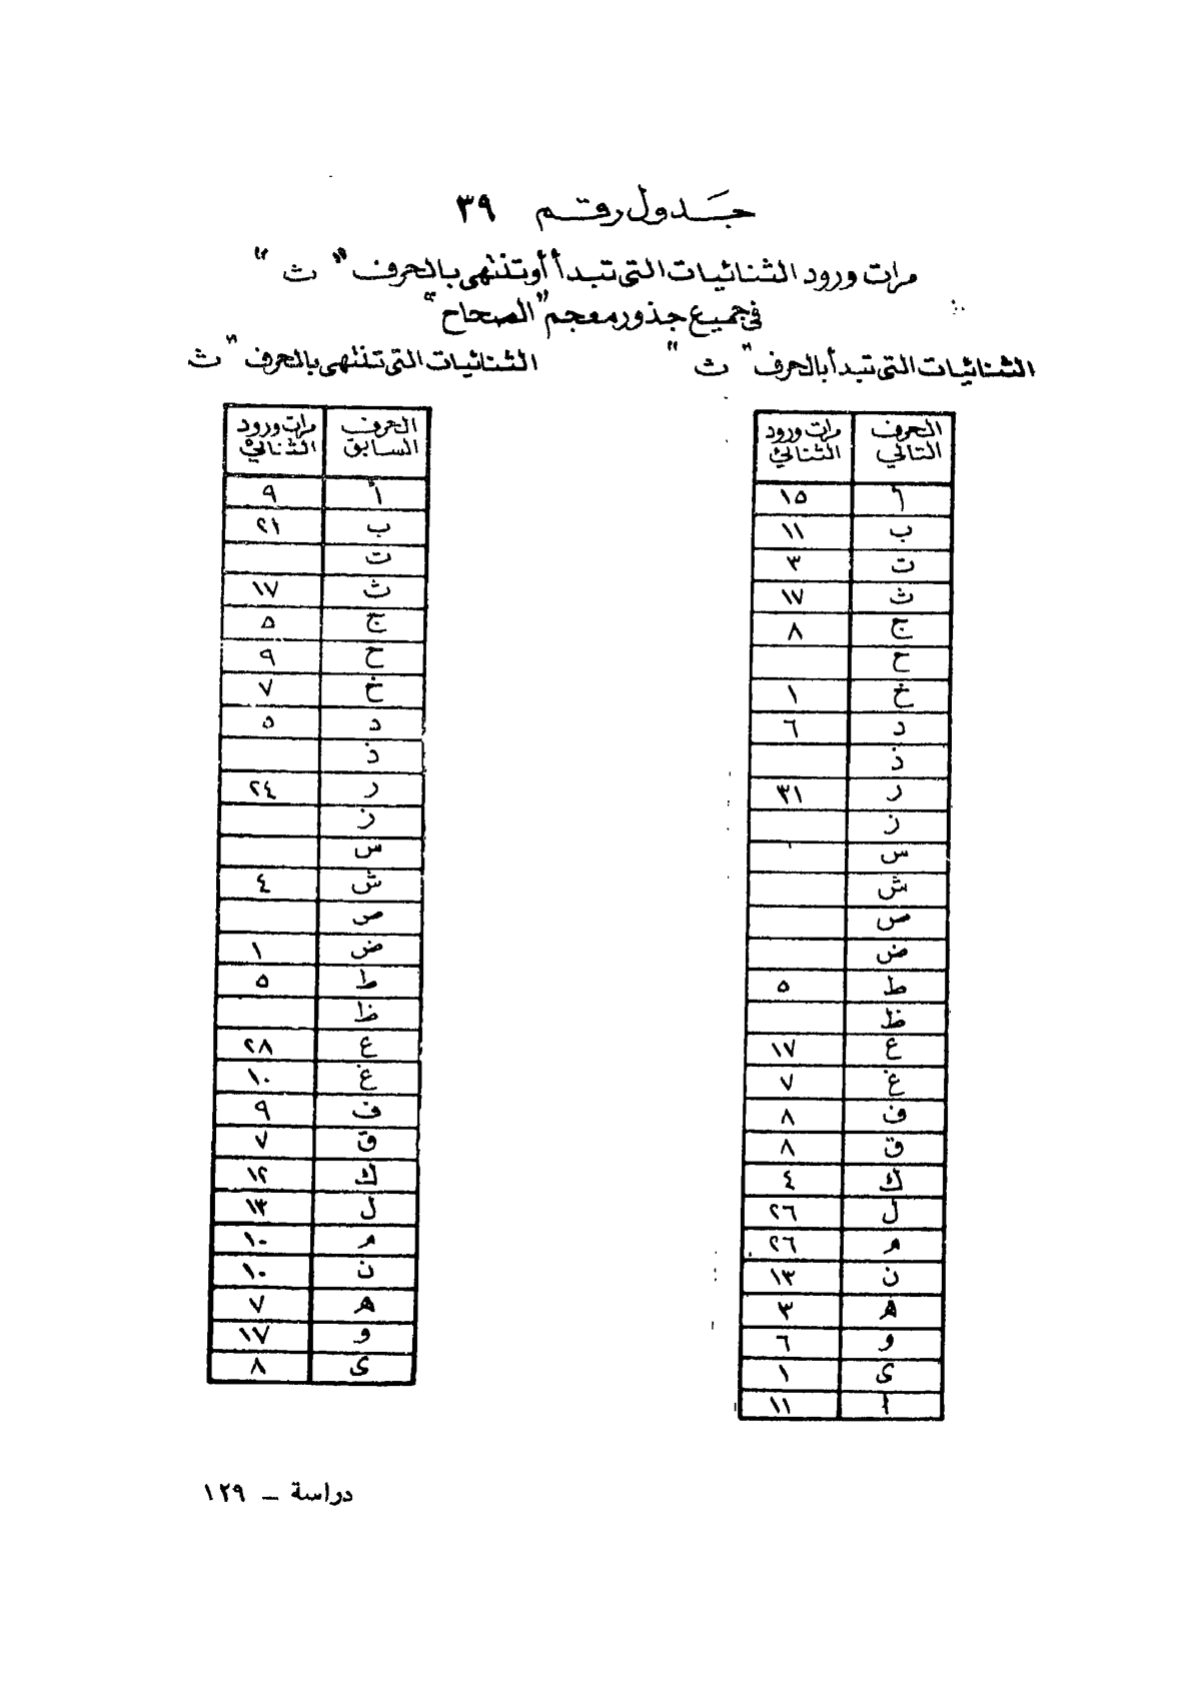 جدول رقم ٣٩
مرات ورود الثنائيات التى تبدأ أو تنتهى بالحرف " ث "
فى جميع جذور معجم "الصحاح"
الثنائيات التى تبدأ بالحرف " ث "
الحرف التالي مرات ورود الثنائي
أ ١٥
ب ١١
ت ٣
ث ١٧
ج ٨
ح
خ ١
د ٦
ذ
ر ٣١
ز
س
ش
ص
ض
ط ٥
ظ
ع ١٧
غ ٧
ف ٨
ق ٨
ك ٤
ل ٢٦
م ٢٦
ن ١٣
ه ٣
و ٦
ى ١
ا ١١
الثنائيات التى تنتهى بالحرف " ث
الحرف السابق مرات ورود الثنائي
أ ٩
ب ٢١
ت
ث ١٧
ج ٥
ح ٩
خ ٧
د ٥
ذ
ر ٢٤
ز
س
ش ٤
ص
ض ١
ط ٥
ظ
ع ٢٨
غ ١٠
ف ٩
ق ٧
ك ١٢
ل ١٣
م ١٠
ن ١٠
ه ٧
و ١٧
ى ٨
دراسة – ١٢٩